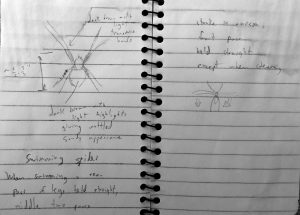 dark brown with
light
transverse
bands
dark brown with
light highlights
giving mottled
sandy appearance
Swimming spider
When swimming, rear
pair of legs held straight,
middle two pairs
stroke in unison,
front pair
held straight
except when steering